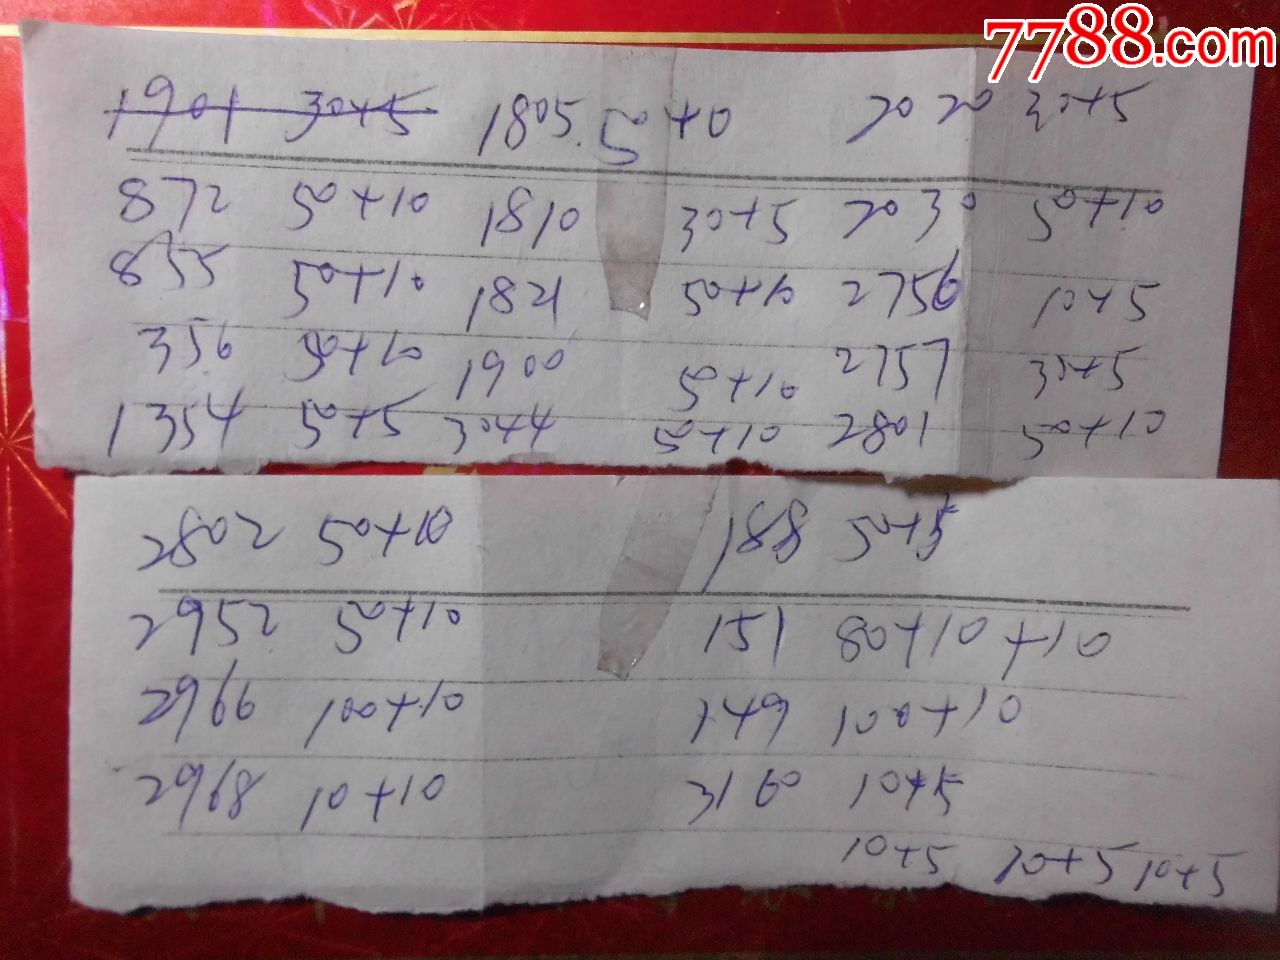 7788.com
1901 30+5 1805. 50+10 2020 30+5
872 50+10 1810 30+5 2030 50+10
855 50+10 1821 50+10 2756 10+5
356 50+10 1900 50+10 2757 30+5
1354 50+5 3044 50+10 2801 50+10
2802 50+10 188 50+5
2952 50+10 151 80+10+10
2966 100+10 149 100+10
2968 10+10 3160 10+5
10+5 10+5 10+5